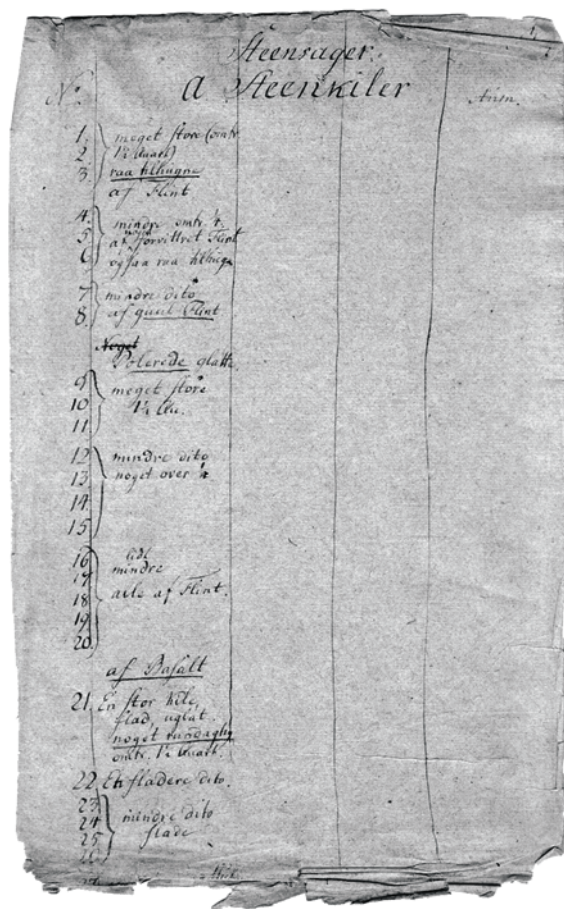 Steensager.
No. A Steenkiler Anm.
1. meget store (omtr.
2. 1½ Quart)
3. raa tilhugne
af Flint
4. mindre omtr.
5. af noget forvittret Flint
6. ogsaa raa tilhug.
7 mindre dito
8. af guul Flint
Noget
Polerede glatte.
9 meget store
10 1½ Qu.
11
12 mindre dito
13 noget over
14
15
16 lidt
17 mindre
18 alle af Flint.
19
20
af Basalt
21. En stor Kile,
flad, uglat.
noget rundagtig
omtr. 1½ Quart.
22. En fladere dito.
23
24 mindre dito
25 flade
26